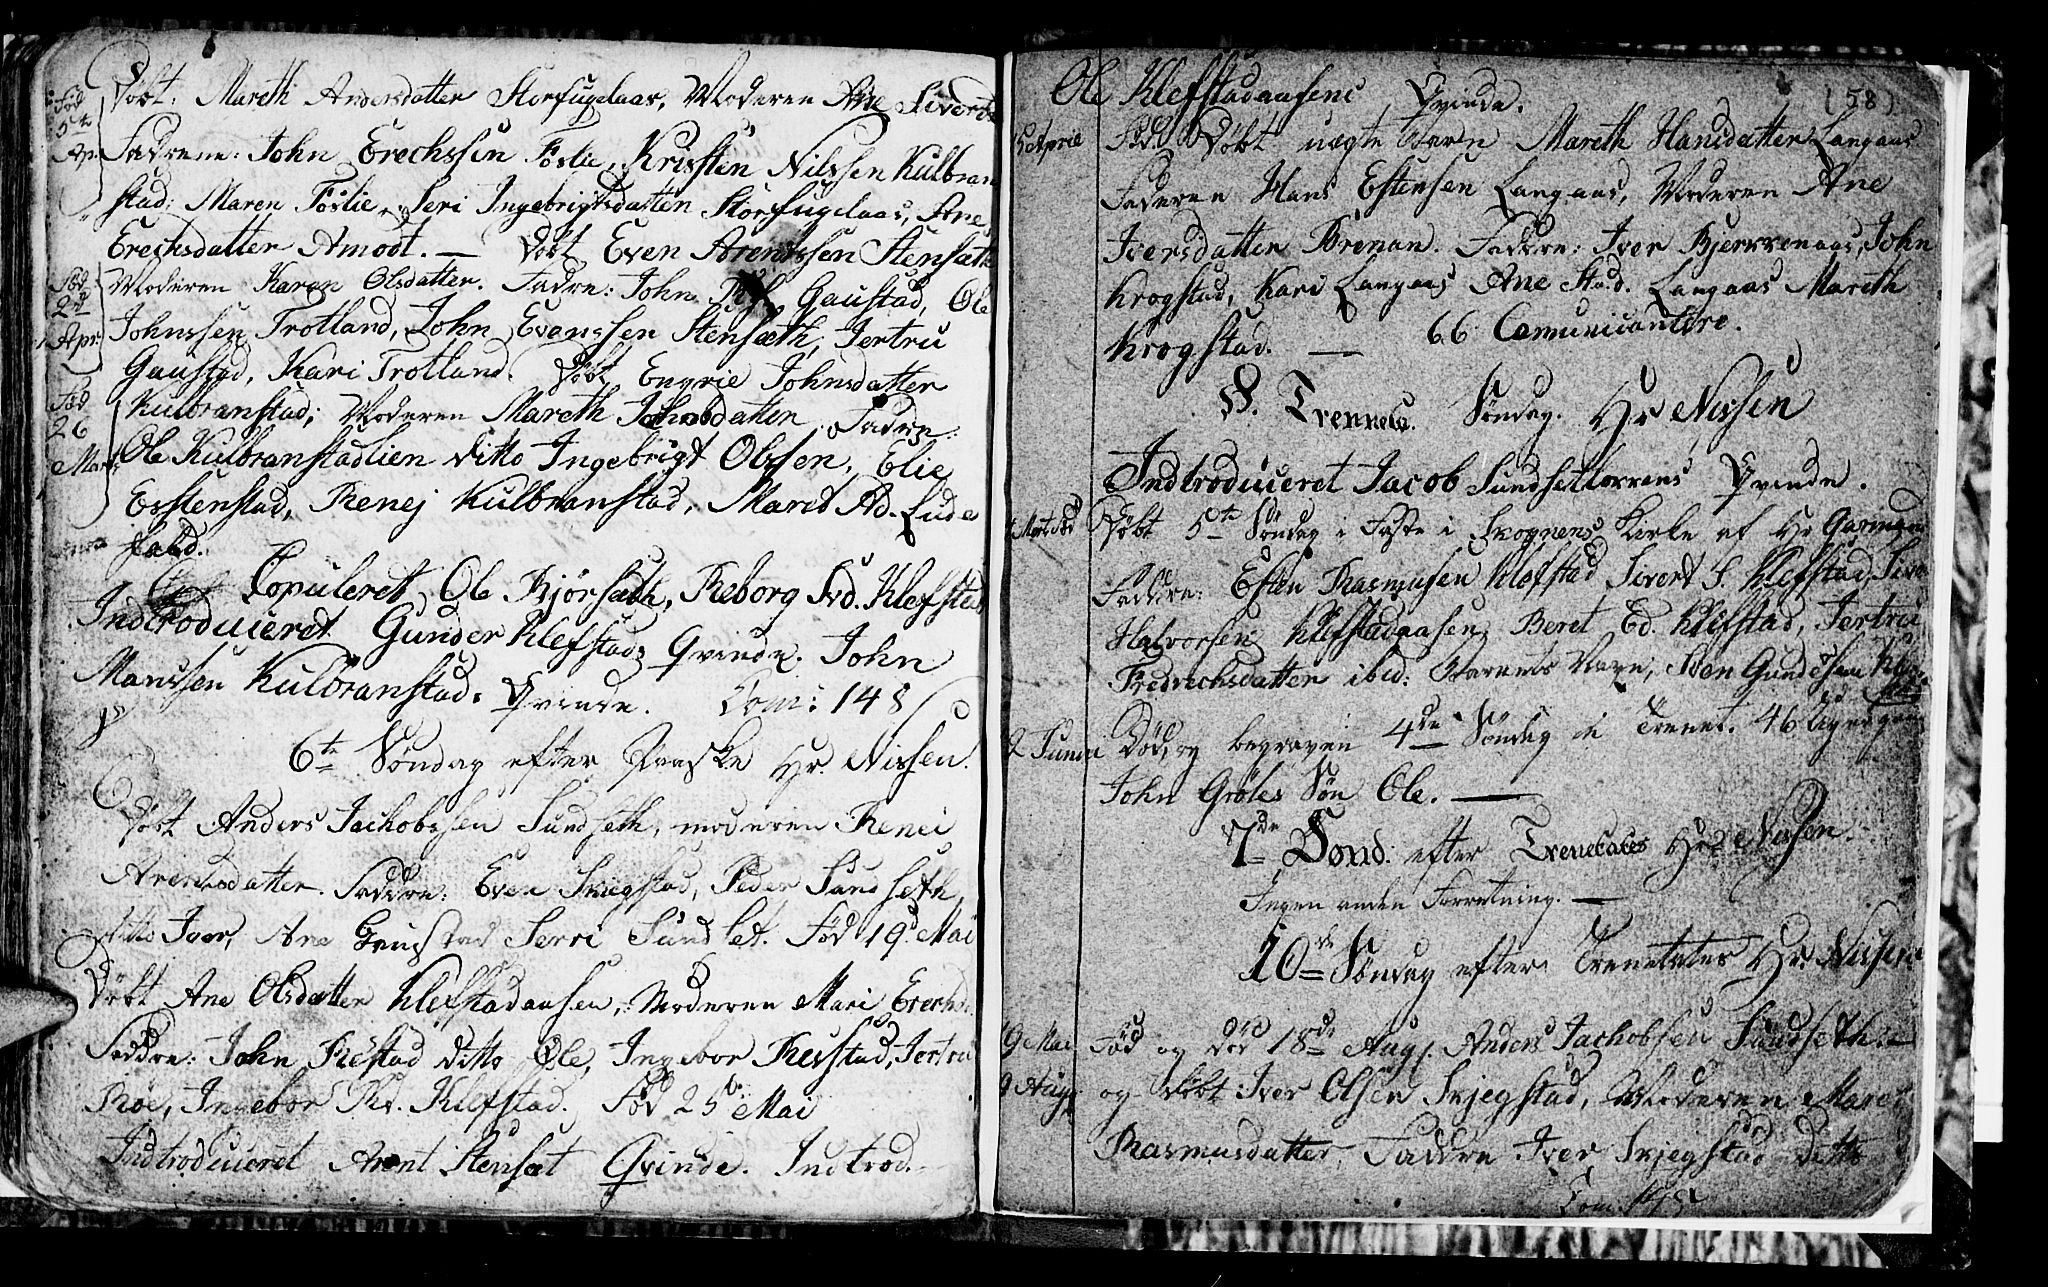 Døbt. Mareth Andersdatter Storfugelaas, Moderen Ane Siverts
Fød
5te
Apr
Fadrene: John Erechssen Foslie, Kristen Nilssen Kulbran
stad: Maren Foslie, Seri Ingebrigtsdatten Storfugelaas, Ane
Erechsdatter Amodt. — Døbt Even Arentssen Stensæth
Fød
2de
Apr
Moderen Karen Olsdatter. Fadre: John Gaustad, Ole
Johnssen Trotland, John Evenssen Stensæth, Jertru
Gaustad, Kari Trotland. Døbt Engrie Johnsdatter
Fød
26
Marts
Kulbranstad; Moderen Mareth Johnsdatten. Fadre:
Ole Kulbranstadlien ditto Ingebrigt Olssen, Elie
Esstenstad, Renej Kulbranstad, Maret Ad. Ludes
Copuleret Ole Bjørseth, Reborg Sd. Klefstad
Indtroduceret Gunder Klefstads Qvinde. John
Manssen Kulbranstads Qvinde. Com: 148
6te Søndag efter Paaske Hr. Nissen.
Døbt Anders Jachobssen Sundseth, moderen Renei
Arentsdatter. Faddre: Even Skiegstad, Peder Sundseth,
ditto Iver, Ane Gaustad Serri Sundset. Fød 19d Mai
Døbt Ane Olsdatter Klefstadaasen, Moderen Mari Erechsd.
Faddre: John Restad ditto Ole, Ingebor Resstad, Jertru
Roe, Ingebor Rd. Klefstad. Fød 25de Mai
Indtroduceret Arent Stensæt Qvinde. Indtrod.
(58)
Ole Klefstadaasens Qvinde.
5 Aprile
Fød. Døbt uægte Barn Mareth Hansdatter Langaas
Faderen Hans Estensen Langaas, Moderen Ane
Iversdatter Brenan. Faddre: Iver Bjerkenaas, John
Krogstad, Kari Langaas Ane Sd. Langaas Mareth
Krogstad. — 66 Comunicantere.
S. Trennets. Søndag. Hr Nissen
Indtroduceret Jacob Sundsetlorrens Qvinde.
Døbt 5te Søndag i Faste i Skognens Kirke af Hr Garmann
Faddre: Esten Rasmusen Klefstad Sivert S. Klefstad, Siver
Halvorsen Klefstadaasen, Beret Ed. Klefstad, Jertru
Fredrichsdatter ibid: Barnets Navn; Sven Gundersen Klef-
stad
2 Juni
Død, og begraven 4de Søndag i Trenet. 46 Uger gam
John Grøtes Søn Ole. —
7de Sønd: efter Trenetates Hr Nissen.
Ingen anden Forretning. —
10de Søndag efter Trenetates Hr. Nissen
19 Mai
Fød og død 18de Aug. Anders Jachobsen Sundseth. —
9 Aug.
og Døbt Iver Olsen Skjegstad, Moderen Maret
Rasmusdatter, Faddre Iver Skjegstad ditto